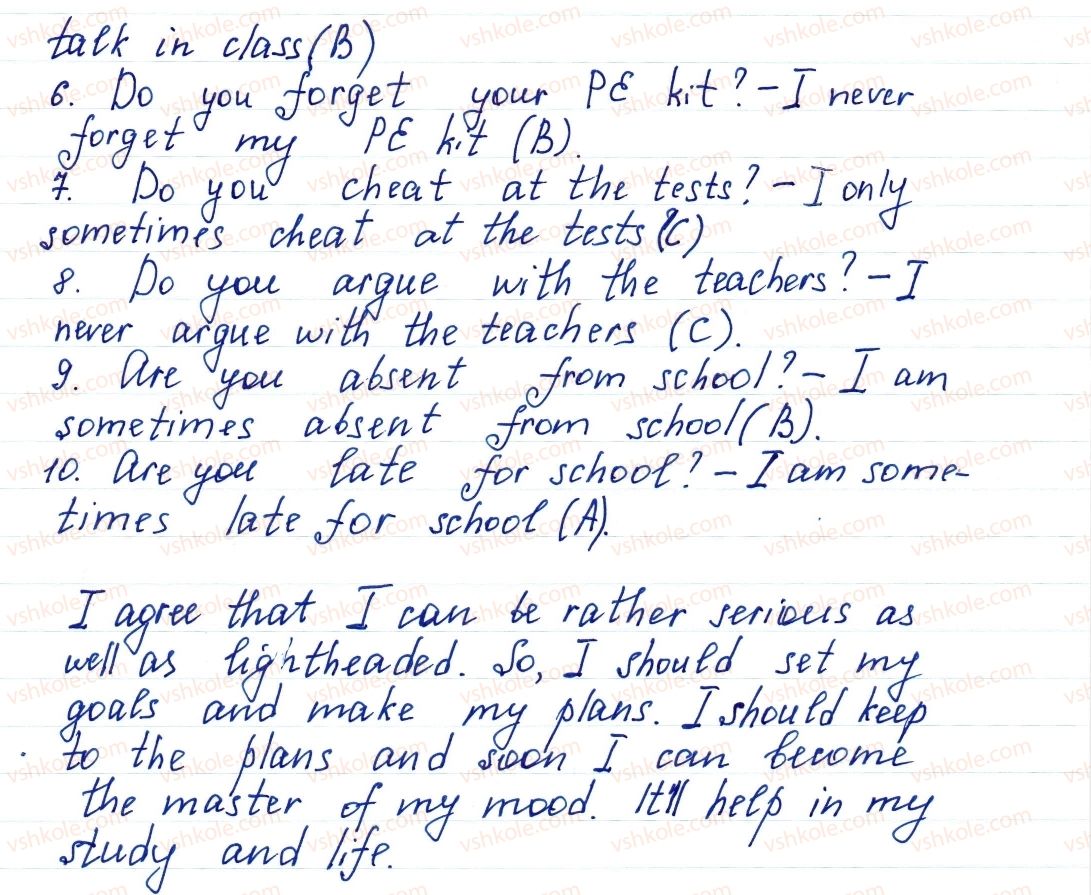 talk in class (B)
6. Do you forget your PE kit? – I never
forget my PE kit (B).
7. Do you cheat at the tests? – I only
sometimes cheat at the tests (C)
8. Do you argue with the teachers? – I
never argue with the teachers (C).
9. Are you absent from school? – I am
sometimes absent from school (B).
10. Are you late for school? – I am some-
times late for school (A).
I agree that I can be rather serious as
well as lightheaded. So, I should set my
goals and make my plans. I should keep
to the plans and soon I can become
the master of my mood. It'll help in my
study and life.
vshkole.com